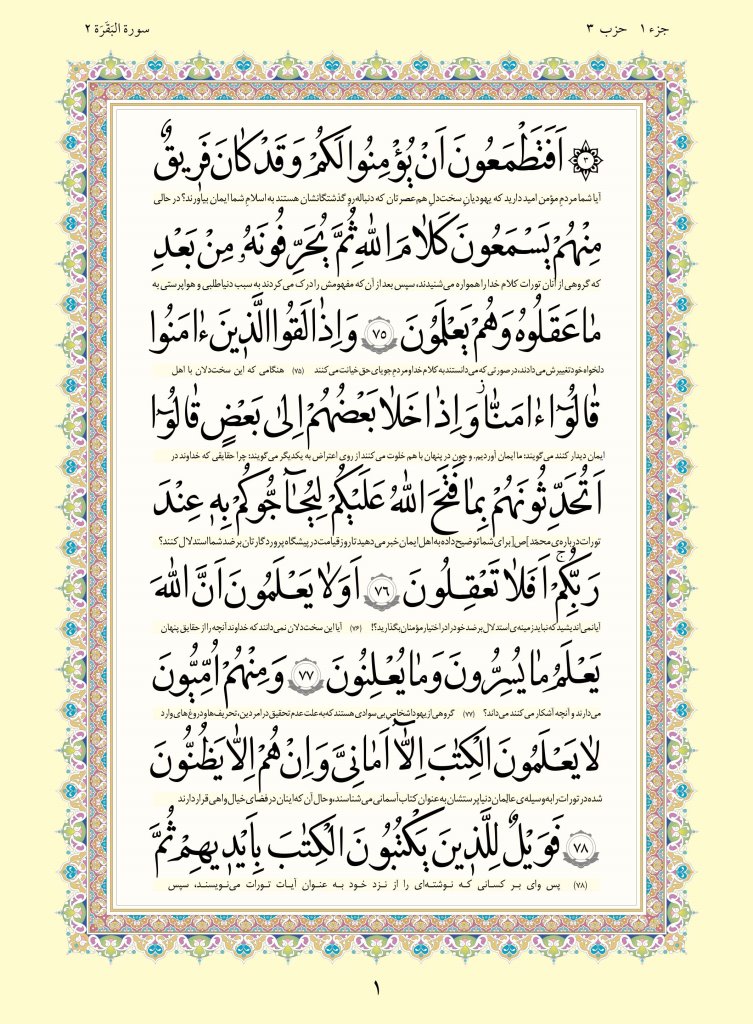 جزء ۱ حزب ۳
سورة البَقَرَة ۲
۳ اَفَتَطْمَعُونَ اَنْ يُؤْمِنُوا لَكُمْ وَقَدْ كَانَ فَرِيقٌ
آیا شما مردم مؤمن امید دارید که یهودیانِ سخت‌دل هم‌عصرتان که دنباله‌رو گذشتگانشان هستند به اسلام شما ایمان بیاورند؟ در حالی
مِنْهُمْ يَسْمَعُونَ كَلَامَ اللّٰهِ ثُمَّ يُحَرِّفُونَهُ مِنْ بَعْدِ
که گروهی از آنان تورات کلام خدا را همواره می‌شنیدند، سپس بعد از آن که مفهومش را درک می‌کردند به سبب دنیاطلبی و هواپرستی به
مَا عَقَلُوهُ وَهُمْ يَعْلَمُونَ ۷۵ وَاِذَا لَقُوا الَّذِينَ ءَامَنُوا
دلخواه خود تغییرش می‌دادند، در صورتی که می‌دانستند به کلام خدا و مردم جویای حق خیانت می‌کنند (۷۵) هنگامی که این سخت‌دلان با اهل
قَالُوٓا ءَامَنَّا ز وَاِذَا خَلَا بَعْضُهُمْ اِلٰى بَعْضٍ قَالُوٓا
ایمان دیدار کنند می‌گویند: ما ایمان آوردیم. و چون در پنهان با هم خلوت می‌کنند از روی اعتراض به یکدیگر می‌گویند: چرا حقایقی که خداوند در
اَتُحَدِّثُونَهُمْ بِمَا فَتَحَ اللّٰهُ عَلَيْكُمْ لِيُحَآجُّوكُمْ بِهِ عِنْدَ
تورات درباره‌ی محمّد ]ص[ برای شما توضیح داده به اهل ایمان خبر می‌دهید تا روز قیامت در پیشگاه پروردگارتان بر ضد شما استدلال کنند؟
رَبِّكُمْ ج اَفَلَا تَعْقِلُونَ ۷۶ اَوَلَا يَعْلَمُونَ اَنَّ اللّٰهَ
آیا نمی‌اندیشید که نباید زمینه‌ی استدلال بر ضد خود را در اختیار مؤمنان بگذارید؟! (۷۶) آیا این سخت‌دلان نمی‌دانند که خداوند آنچه را از حقایق پنهان
يَعْلَمُ مَا يُسِرُّونَ وَمَا يُعْلِنُونَ ۷۷ وَمِنْهُمْ اُمِّيُّونَ
می‌دارند و آنچه آشکار می‌کنند می‌داند؟ (۷۷) گروهی از یهود اشخاص بی‌سوادی هستند که به علت عدم تحقیق در امر دین، تحریف‌ها و دروغ‌های وارد
لَا يَعْلَمُونَ الْكِتٰبَ اِلَّآ اَمَانِىَّ وَاِنْ هُمْ اِلَّا يَظُنُّونَ
شده در تورات را به وسیله‌ی عالِمان دنیاپرستشان به عنوان کتاب آسمانی می‌شناسند، و حال آن که اینان در فضای خیال واهی قرار دارند
۷۸ فَوَيْلٌ لِلَّذِينَ يَكْتُبُونَ الْكِتٰبَ بِاَيْدِيهِمْ ثُمَّ
(۷۸) پس وای بر کسانی که نوشته‌ای را از نزد خود به عنوان آیات تورات می‌نویسند، سپس
۱